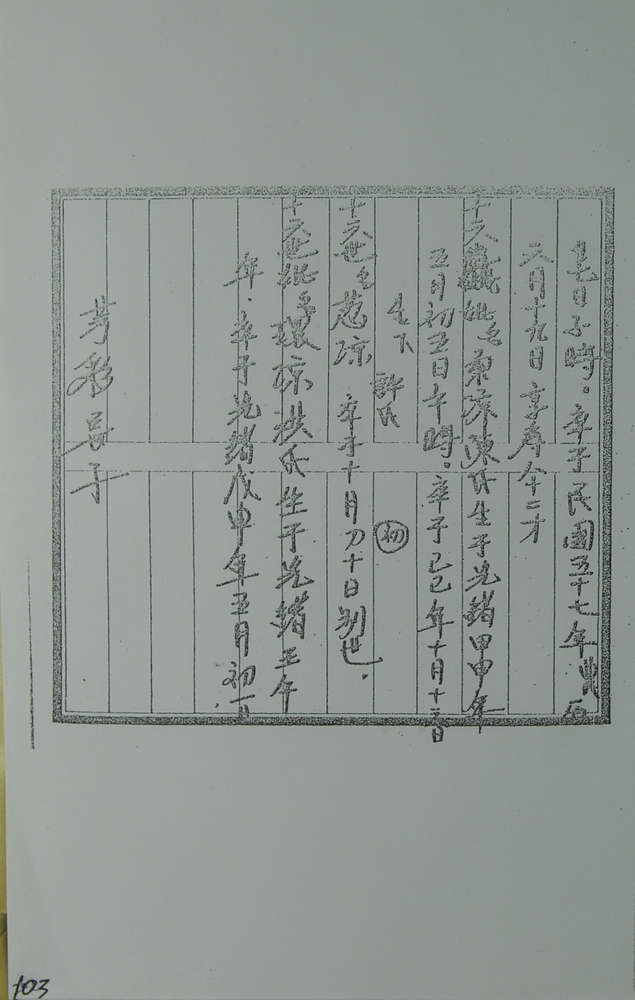 日子時。卒于民國五十七年
六月十九日享壽八十二才
十六世妣名陳氏生于光緒甲申年
五月初五日午時。卒于己巳年十月十三日
生下 許氏 初
十六世名蔥涼 卒于十月刀十日別世.
十六世妣名環涼 氏生于光緒壬午
年.卒于光緒戊申年五月初一日.
長子
103